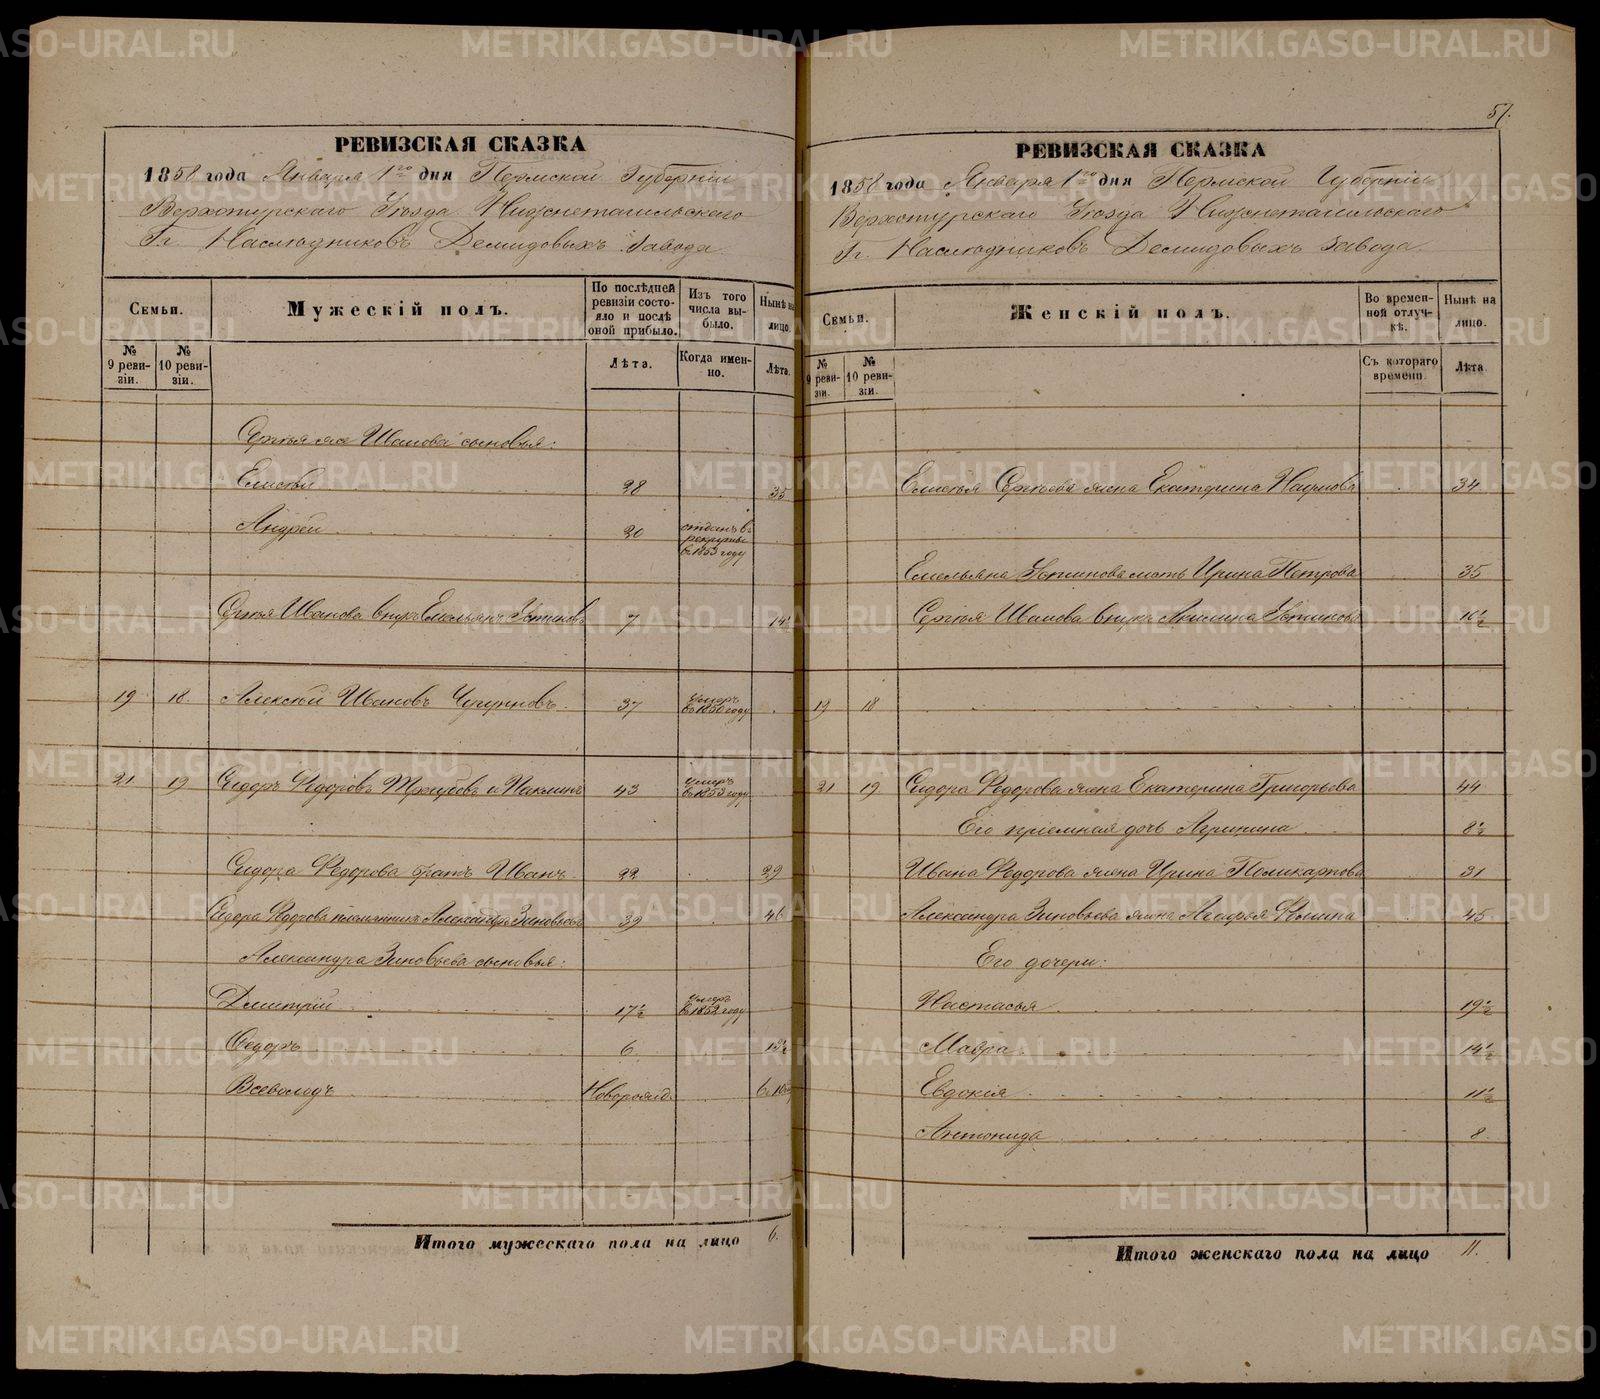 57.
РЕВИЗСКАЯ СКАЗКА
1858 года Января 1го дня Пермской Губерніи
Верхотурскаго Уѣзда Нижнетагильскаго
Гг. Наслѣдниковъ Демидовыхъ завода
Семьи.
Мужескій полъ.
По послѣдней ревизіи состояло и послѣ оной прибыло.
Изъ того числа выбыло.
Нынѣ на лицо.
№ 9 ревизіи.
№ 10 ревизіи.
Лѣта.
Когда именно.
Лѣта.
Сергѣя же Иванова сыновья:
Елисѣй 28 35
Андрей 20 отданъ въ рекруты въ 1853 году
Сергѣя Иванова внукъ Емельянъ Устиновъ 7 14½
19 18. Алексѣй Ивановъ Чугуновъ 37 умеръ въ 1850 году
21 19 Сидоръ Ѳедоровъ 43 умеръ въ 1853 году
Сидора Ѳедорова братъ Иванъ 22 29
Сидора Ѳедорова племянникъ Александръ Зиновьевъ 39 46
Александра Зиновьева сыновья:
Дмитрій 17½ умеръ въ 1852 году
Ѳедоръ 6 13½
Всеволодъ Новорожд. 6
Итого мужескаго пола на лицо 6.
РЕВИЗСКАЯ СКАЗКА
1858 года Января 1го дня Пермской Губерніи
Верхотурскаго Уѣзда Нижнетагильскаго
Гг. Наслѣдниковъ Демидовыхъ завода
Семьи.
Женскій полъ.
Во временной отлучкѣ.
Нынѣ на лицо.
№ 9 ревизіи.
№ 10 ревизіи.
Съ котораго времени.
Лѣта.
Елисѣя Сергѣева жена Екатерина Наумова 34
Емельяна Устинова мать Ирина Петрова 35
Сергѣя Иванова внука Акилина Устинова 10½
19 18
21 19 Сидора Ѳедорова жена Екатерина Григорьева 44
Его пріемная дочь Агрипина 8½
Ивана Ѳедорова жена Ирина Поликарпова 31
Александра Зиновьева жена Агафья Ѳомина 45
Его дочери:
Настасья 19½
Мавра 14½
Евдокія 11½
Антонида 8
Итого женскаго пола на лицо 11.
METRIKI.GASO-URAL.RU